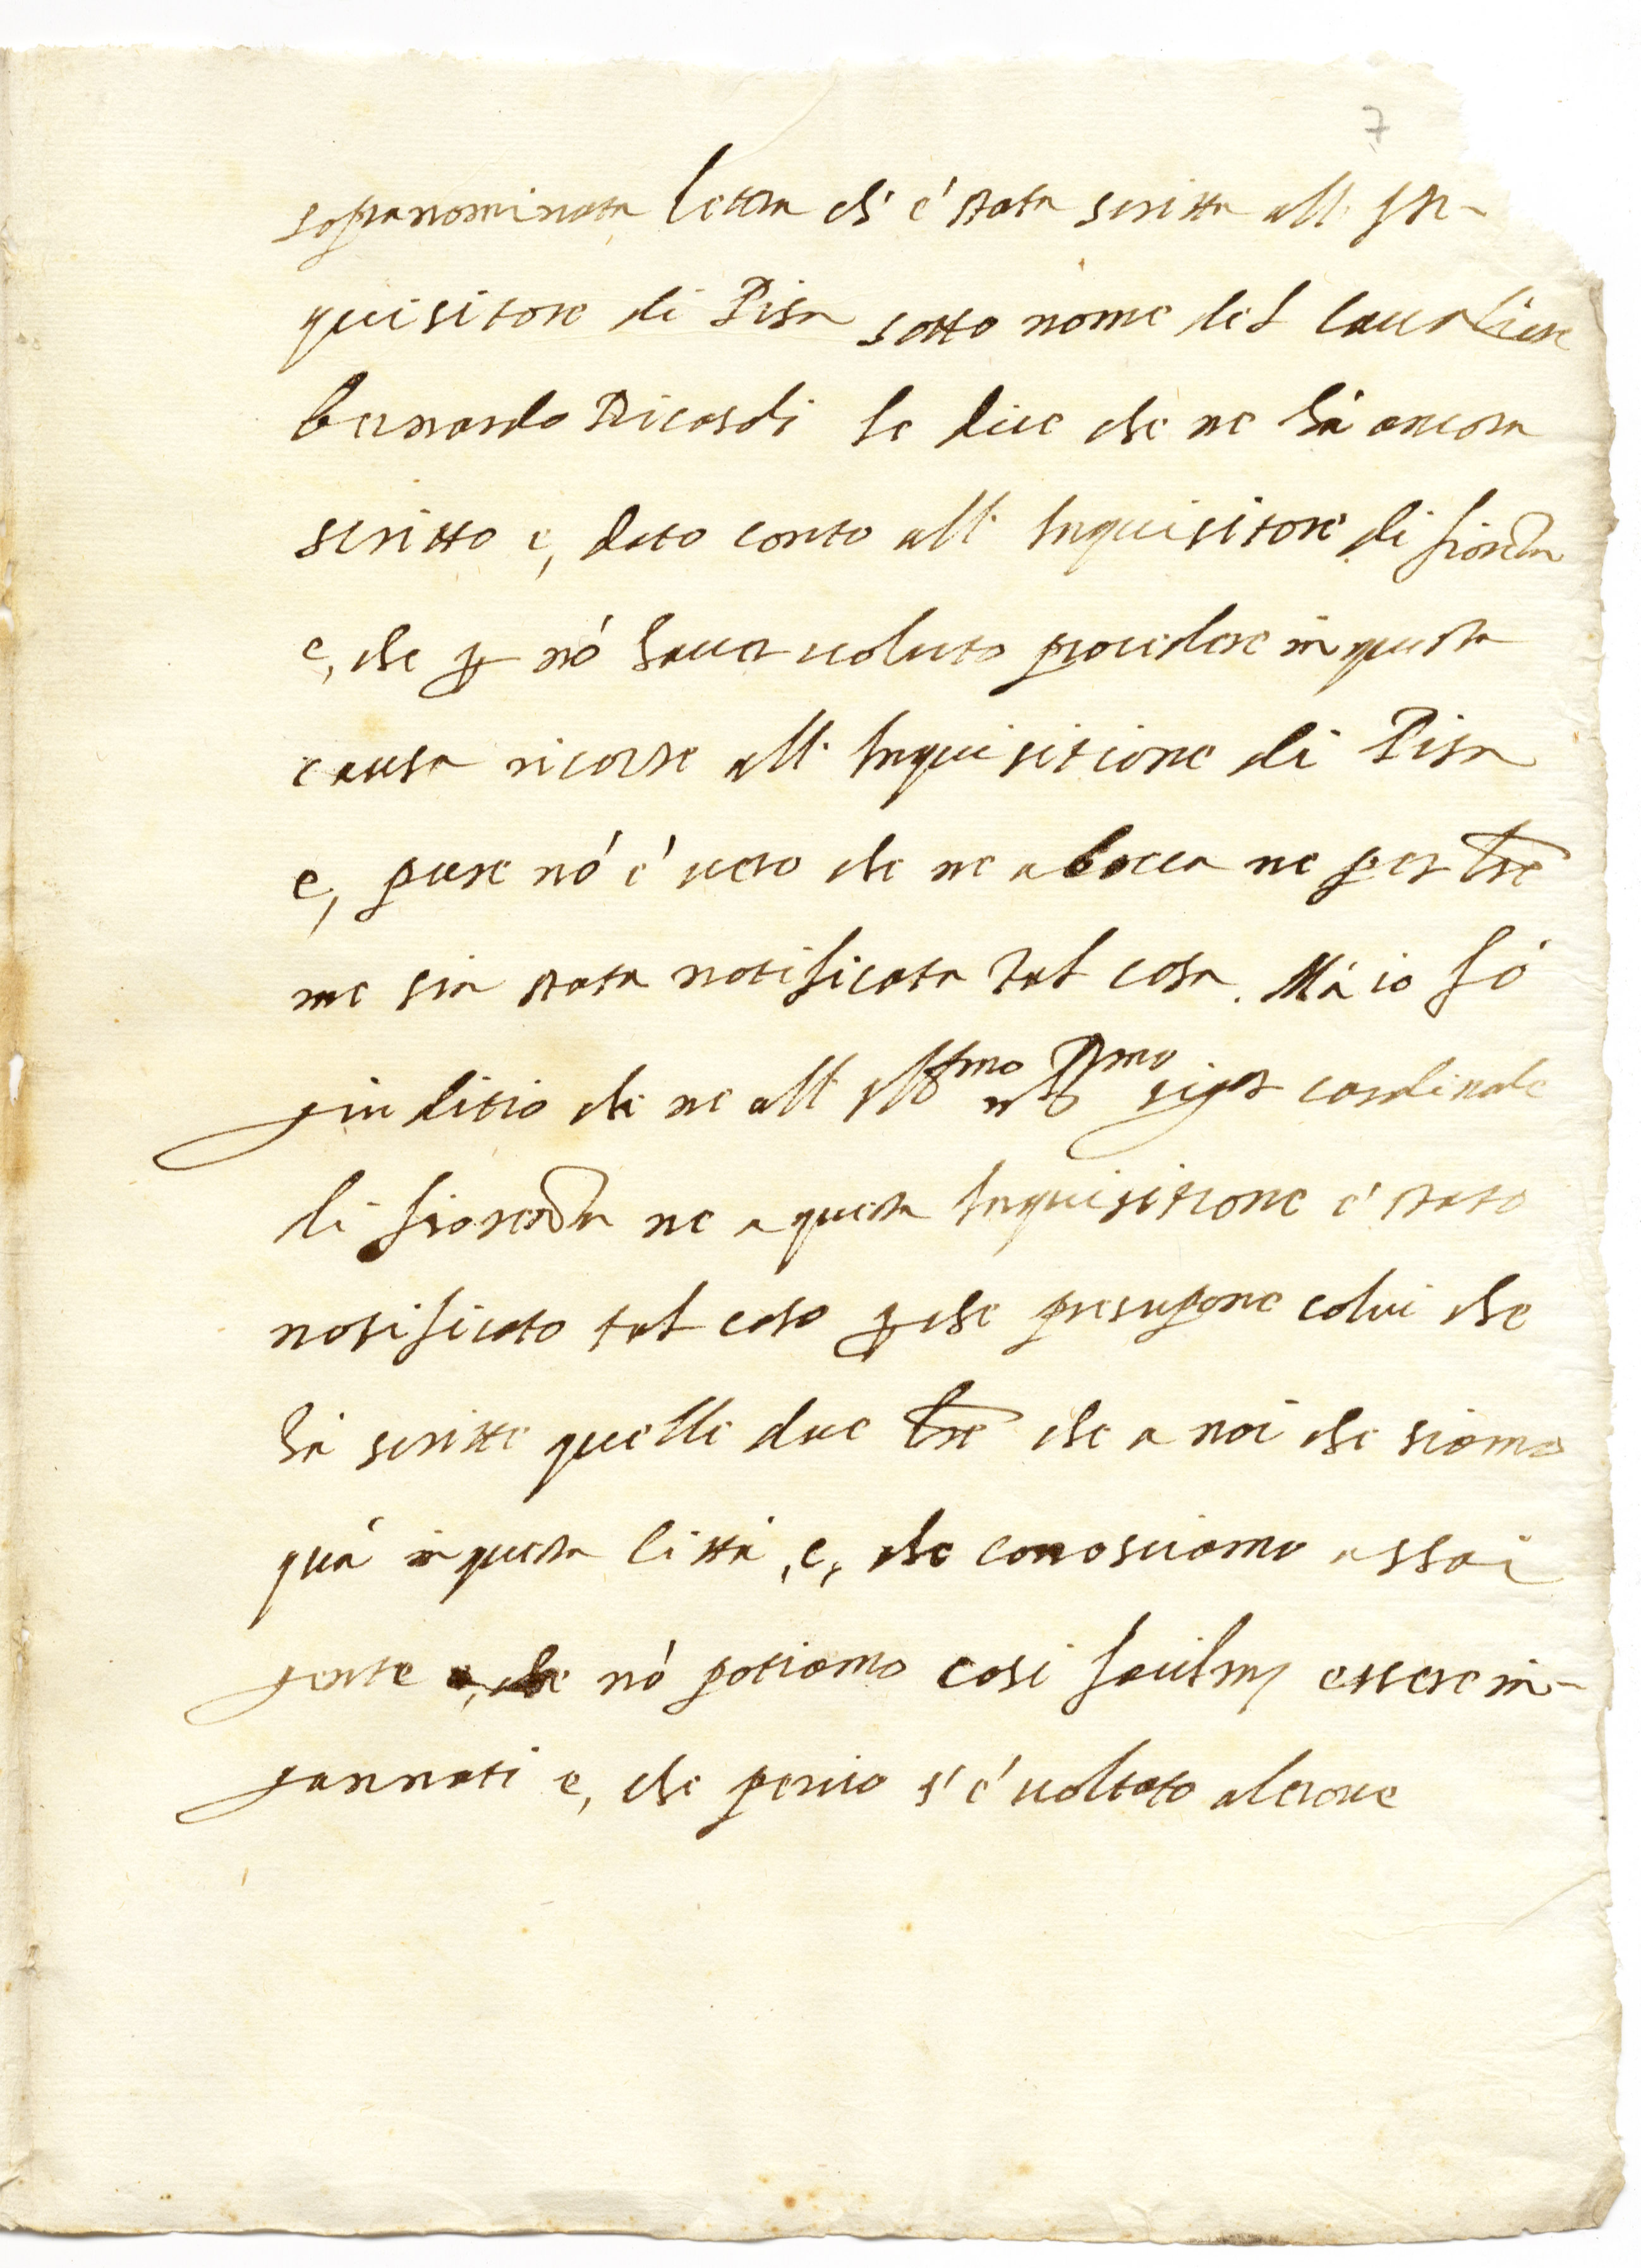 7
sopranominata lettra ch' è stata scritta all' In-
quisitore di Pisa sotto nome del Cavaliere
Bernardo Ricasoli se dice che ne hà ancora
scritto e, dato conto all' Inquisitore di fiorēza
e, che ꝑ nō haver voluto procedere in questa
causa ricorse all' Inquisitione di Pisa
e, pure nō è vero che ne a bocca ne per lr̄e
me sia stata notificata tal cosa. Mà io fò
giuditio che ne all' Ill.mo R.mo sigr cardinale
di fiorenza ne a questa Inquisitione è stato
notificato tal caso ꝑche presupone colui che
hà scritte quelle due lr̄e che a noi che siamo
quà in questa Città, e, che conosciamo assai
gente e, che nō potiamo cosi facilm̄ essere in-
gannati e, che percio s' è voltato altrove